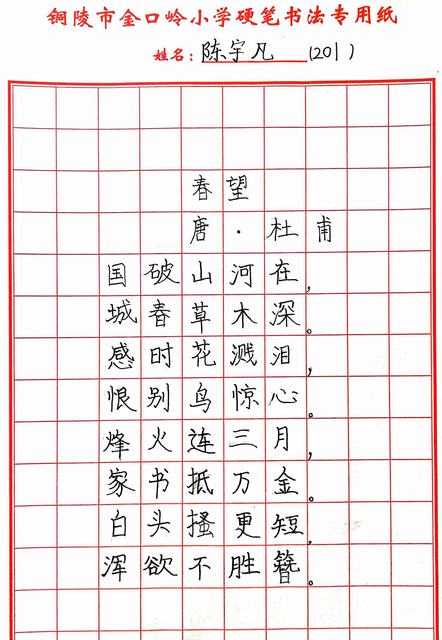 铜陵市金口岭小学硬笔书法专用纸
姓名：陈宇凡 (201)
春望
唐·杜甫
国破山河在，
城春草木深。
感时花溅泪，
恨别鸟惊心。
烽火连三月，
家书抵万金。
白头搔更短，
浑欲不胜簪。